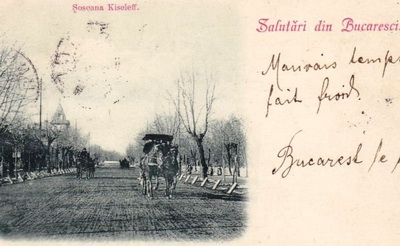 Șoseaua Kiseleff.
Salutări din Bucaresci
Mauvais temps
fait froid.
Bucarest le